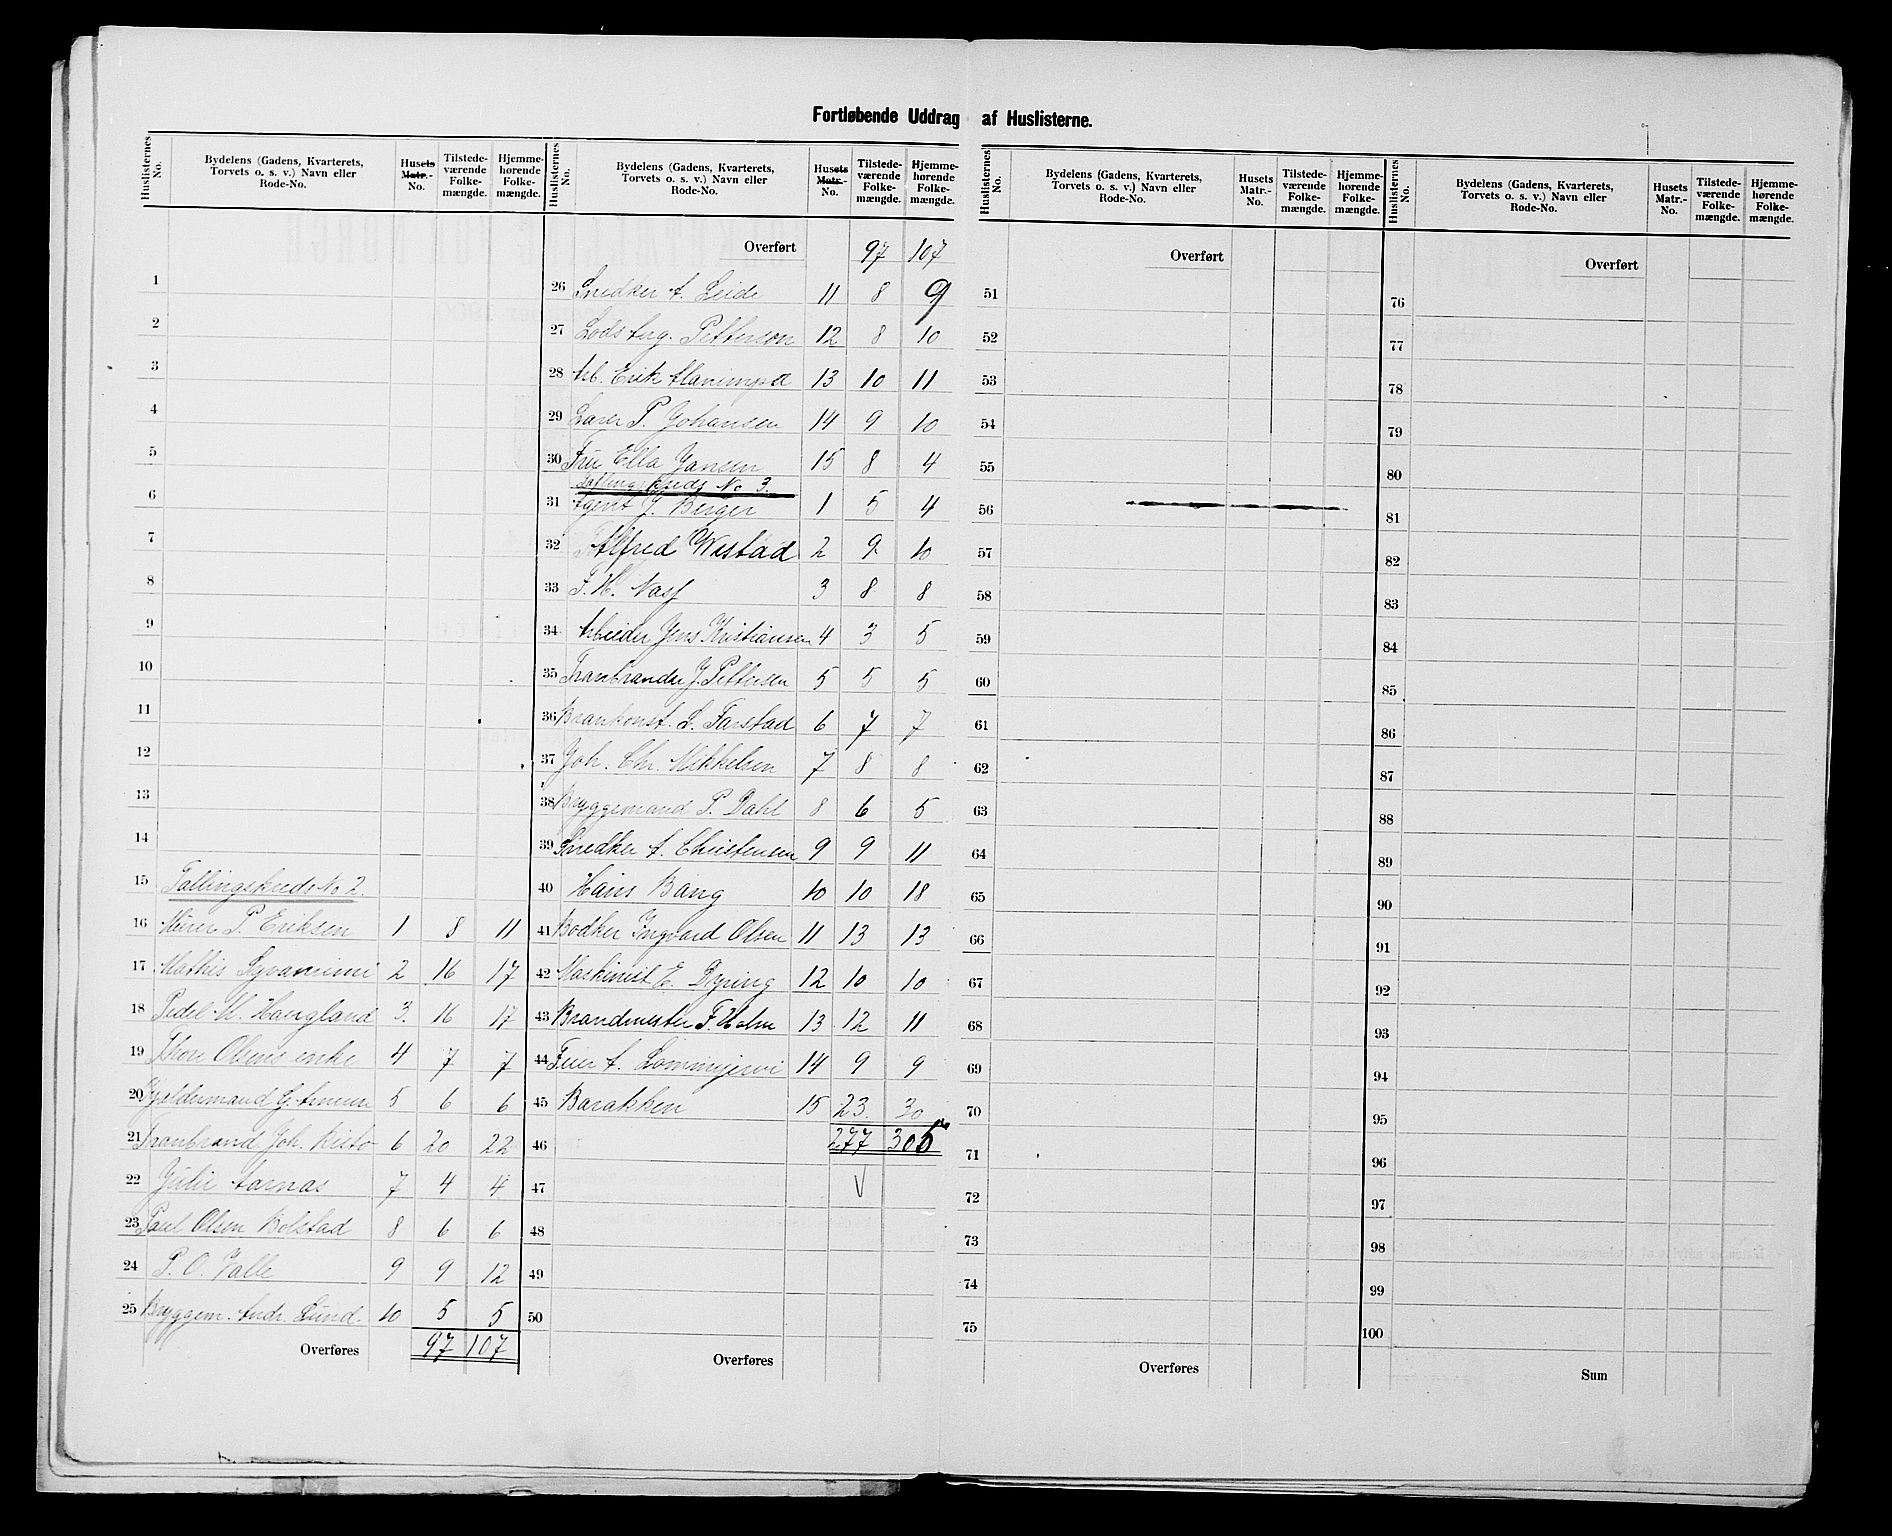 Fortløbende Uddrag af Huslisterne.
Huslisternes No. Bydelens (Gadens, Kvarterets, Torvets o. s. v.) Navn eller Rode-No. Husets Matr.-No. Tilstedeværende Folkemængde. Hjemmehørende Folkemængde.
1
2
3
4
5
6
7
8
9
10
11
12
13
14
15 Tællingskreds No 2.
16 Murer P. Eriksen 1 8 11
17 Mathis 2 16 17
18 Pedel M. Haugland 3. 16 17
19 Thore Olsens enke 4 7 7
20 5 6 6
21 Tranbrænd. Joh. Kisto 6 20 22
22 Julie Aarnæs 7 4 4
23 Paul Olsen Bolstad 8 6 6
24 P. O. Valle 9 9 12
25 Bryggem. Andr. Lund. 10 5 5
Overføres 97 107
Huslisternes No. Bydelens (Gadens, Kvarterets, Torvets o. s. v.) Navn eller Rode-No. Husets Matr.-No. Tilstedeværende Folkemængde. Hjemmehørende Folkemængde.
Overført 97 107
26 Snedker A. Leide 11 8 9
27 Lods Aug. Petterson 12 8 10
28 Arb. Erik 13 10 11
29 P. Johansen 14 9 10
30 Fru Ella Jansen 15 8 4
Tællingskreds No 3.
31 Agent J. Berger 1 5 4
32 Alfred Westad 2 9 10
33 F. H. Nash 3 8 8
34 Arbeider Jens Kristiansen 4 3 5
35 Tranbrænder J. Pettersen 5 5 5
36 Brankonst. L. Farstad 6 7 7
37 Joh. Chr. Mikkelsen 7 8 8
38 Bryggemand P. Dahl 8 6 5
39 Snedker A. Christensen 9 9 11
40 Hans Bang 10 10 18
41 Bødker Ingvard Olsen 11 13 13
42 Maskinist E. Dyring 12 10 10
43 Brandmester F. Holm 13 12 11
44 Feier A. Lommijervi 14 9 9
45 Barakken 15 23. 30
46 277 305
47
48
49
50
Overføres
Huslisternes No. Bydelens (Gadens, Kvarterets, Torvets o. s. v.) Navn eller Rode-No. Husets Matr.-No. Tilstedeværende Folkemængde. Hjemmehørende Folkemængde.
Overført
51
52
53
54
55
56
57
58
59
60
61
62
63
64
65
66
67
68
69
70
71
72
73
74
75
Overføres
Huslisternes No. Bydelens (Gadens, Kvarterets, Torvets o. s. v.) Navn eller Rode-No. Husets Matr.-No. Tilstedeværende Folkemængde. Hjemmehørende Folkemængde.
Overført
76
77
78
79
80
81
82
83
84
85
86
87
88
89
90
91
92
93
94
95
96
97
98
99
100
Sum